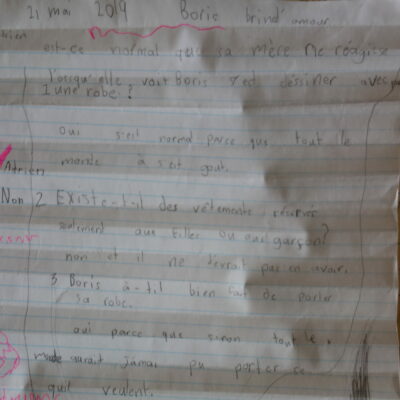 21 mai 2019 Boris brind'amour
est-ce normal que sa mère ne réagisse
lorsqu'elle voit Boris dessiner avec
1 une robe?
oui s'est normal parce que tout le
monde à s'est gout.
Non 2 Existe-t-il des vêtements réservés
seulement aux filles ou aux garçon?
non et il ne devrait pas en avoir.
3 Boris à-t-il bien fait de porter
sa robe.
oui parce que sinon tout le
monde aurait jamai pu porter ce
qu'il veulent.